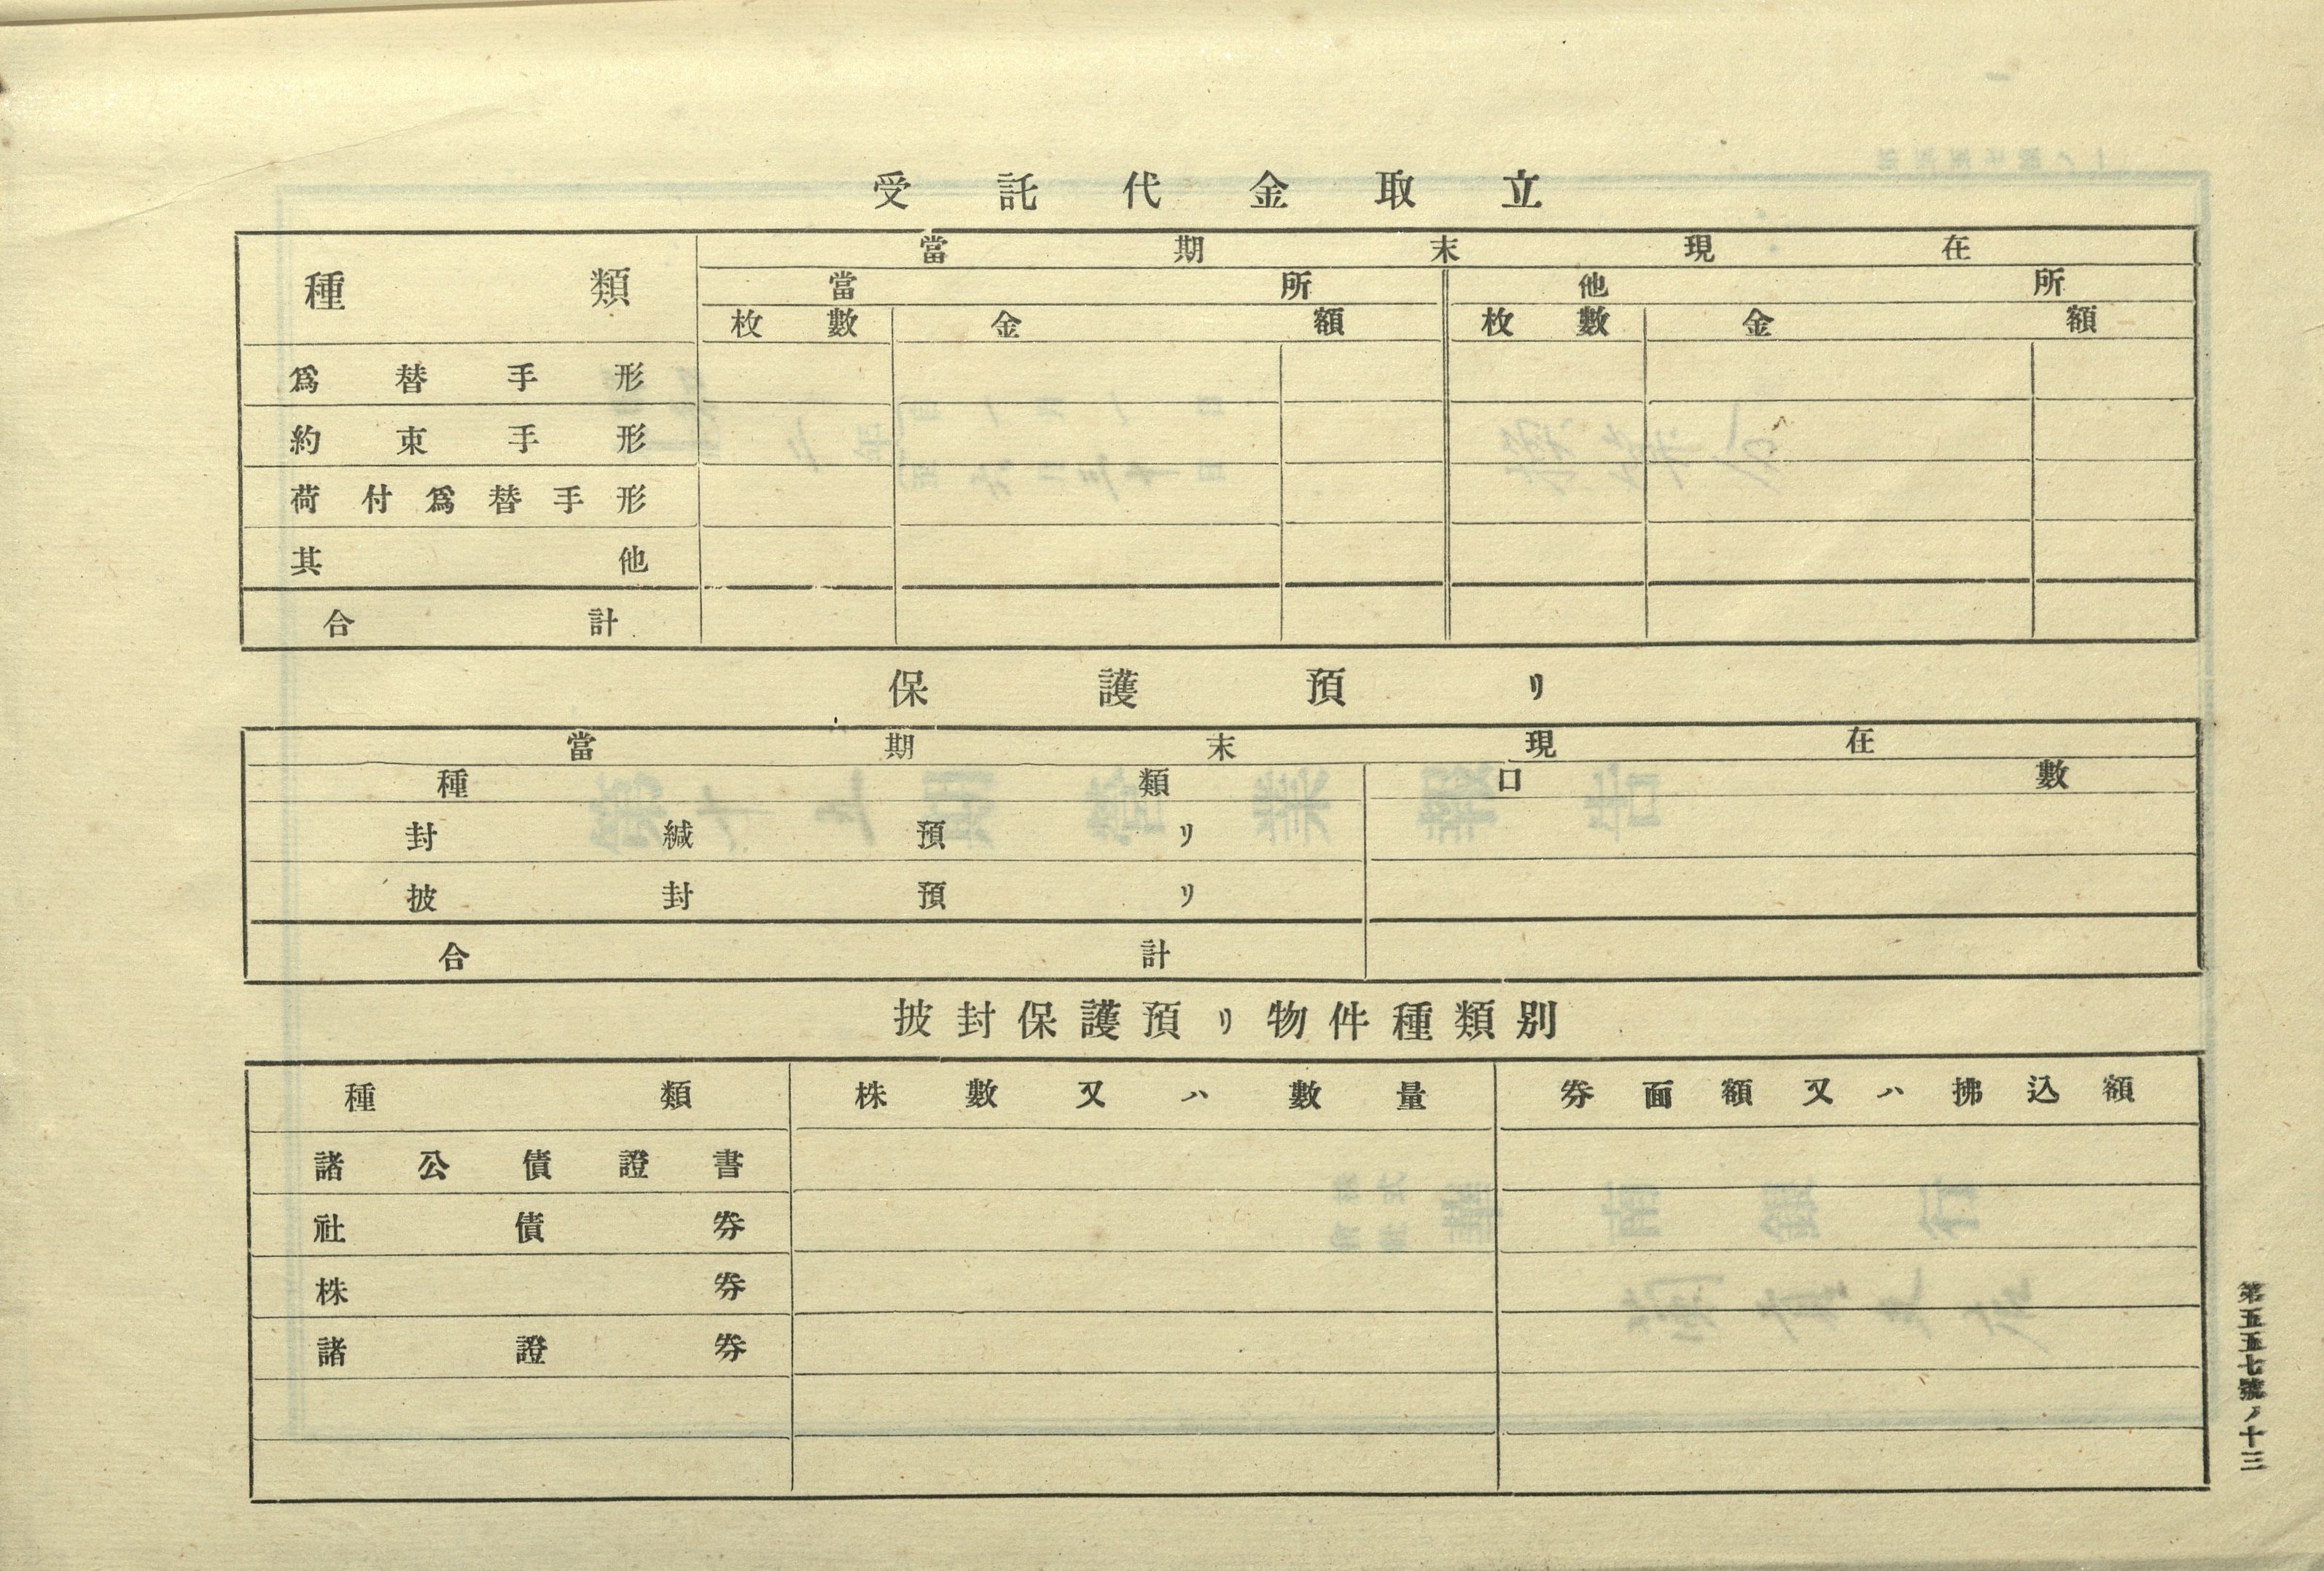 受託代金取立
種類
當期末現在
當所 他所
枚數 金額 枚數 金額
爲替手形
約束手形
荷付爲替手形
其他
合計
保護預リ
當期末現在
種類 口數
封緘預リ
披封預リ
合計
披封保護預リ物件種類別
種類 株數又ハ數量 劵面額又ハ拂込額
諸公債證書
社債劵
株劵
諸證劵
第五五七號ノ十三